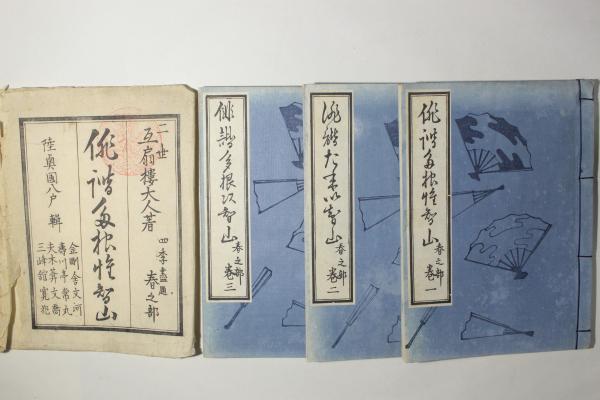 俳諧多根惟智山
春之部
巻一
智山
春之部
巻二
俳諧多根以智山
春之部
巻三
二世
五扇樓大人著
四季畫題
春之部
俳諧多根惟智山
陸奥國八戸 輯
金剛舎文河
壽川亭常丸
夫木葊文喬
三峰館寛兆